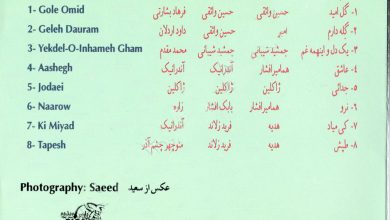 1- Gole Omid فرهاد بشارتی حسین واثقی حسین واثقی ۱- گل امید
2- Geleh Dauram داود اردلان امیر حسین واثقی ۲- گله دارم
3- Yekdel-O-Inhameh Gham محمد مقدم جمشید شیبانی جمشید شیبانی ۳- یک دل و اینهمه غم
4- Aashegh آندرانیک آندرانیک هما میرافشار ۴- عاشق
5- Jodaei ژاکلین ژاکلین ژاکلین ۵- جدائی
6- Naarow زاره بابک افشار هما میرافشار ۶- نرو
7- Ki Miyad آندرانیک فرید زلاند هدیه ۷- کی میاد
8- Tapesh منوچهر چشم آذر فرید زلاند هدیه ۸- طپش
Photography: Saeed عکس از سعید